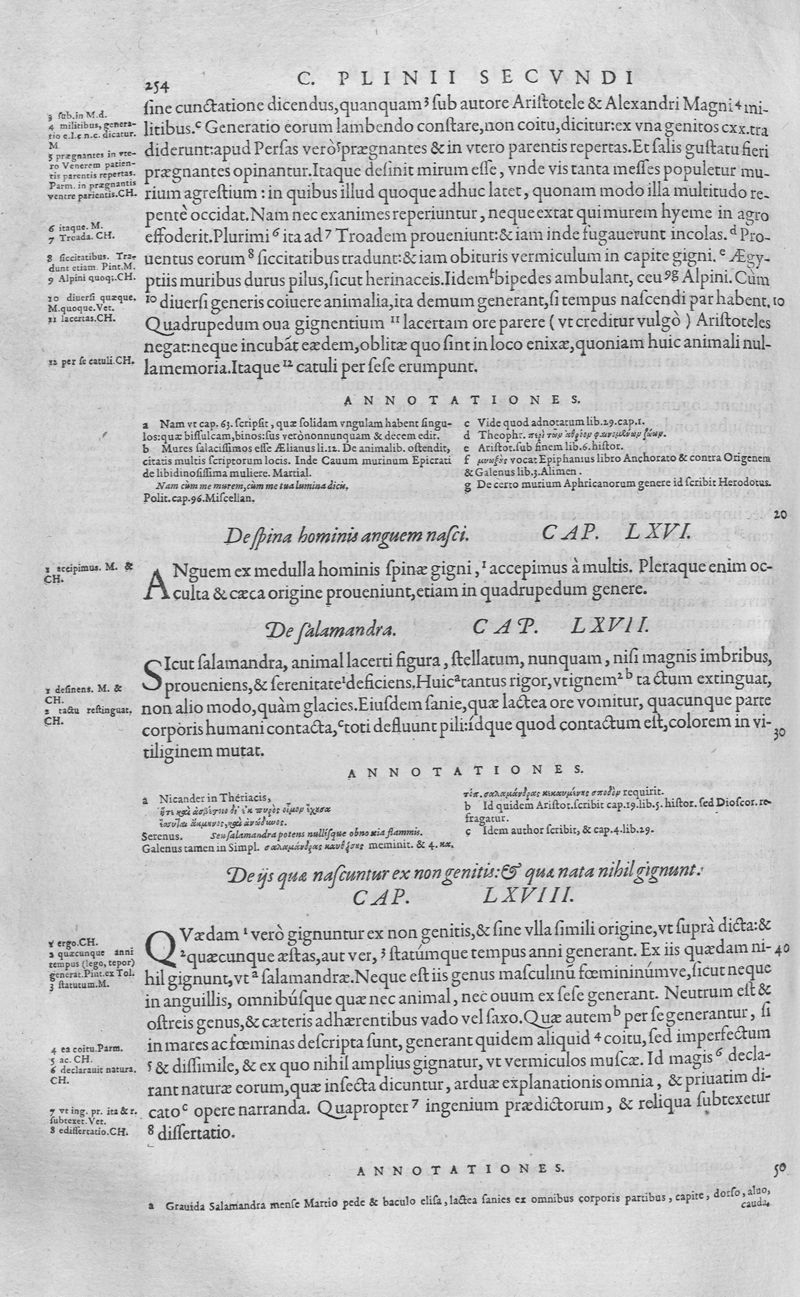 254
C. PLINII SECVNDI
ſine cunctatione dicendus,quanquam³ ſub autore Ariſtotele & Alexandri Magni⁴ mi-
litibus.ᶜ Generatio eorum lambendo conſtare,non coitu,dicitur:ex vna genitos cxx.tra
diderunt:apud Perſas verò⁵prægnantes & in vtero parentis repertas.Et ſalis guſtatu fieri
prægnantes opinantur.Itaque deſinit mirum eſſe, vnde vis tanta meſſes populetur mu-
rium agreſtium : in quibus illud quoque adhuc latet, quonam modo illa multitudo re-
pentè occidat.Nam nec exanimes reperiuntur, neque extat qui murem hyeme in agro
effoderit.Plurimi ⁶ ita ad ⁷ Troadem proueniunt:& iam inde fugauerunt incolas. ᵈ Pro-
uentus eorum ⁸ ſiccitatibus tradunt:& iam obituris vermiculum in capite gigni. ᵉ Ægy-
ptiis muribus durus pilus,ſicut herinaceis.Iidemᶠbipedes ambulant, ceu ⁹ᵍ Alpini.Cùm
¹⁰ diuerſi generis coiuere animalia,ita demum generant,ſi tempus naſcendi par habent. 10
Quadrupedum oua gignentium ¹¹ lacertam ore parere ( vt creditur vulgò ) Ariſtoteles
negat:neque incubát eædem,oblitæ quo ſint in loco enixæ,quoniam huic animali nul-
la memoria.Itaque ¹² catuli per ſeſe erumpunt.
3 ſub.in M.d.
4 militibus, genera-
tio e.l.e n.c. dicatur.
M
5 prægnantes in vte-
ro Venerem patien-
tis parentis repertas.
Parm. in prægnantis
ventre parientis.CH.
6 itaque. M.
7 Troada. CH.
8 ſiccitatibus. Tra-
dunt etiam. Pint.M.
9 Alpini quoq;.CH.
10 diuerſi quæque.
M.quoque.Vet.
11 lacertas.CH.
12 per ſe catuli.CH.
ANNOTATIONES.
a Nam vt cap. 63. ſcripſit, quæ ſolidam vngulam habent ſingu-
los:quæ biſſulcam,binos:ſus verò nonnunquam & decem edit.
b Mures ſalaciſſimos eſſe Ælianus li.12. De animalib. oſtendit,
citatis multis ſcriptorum locis. Inde Cauum murinum Epicrati
de libidinoſiſſima muliere. Martial.
Nam cùm me murem,cùm me tua lumina dicis,
Polit.cap.96.Miſcellan.
c Vide quod adnotatum lib.29.cap.1.
d Theophr.
e Ariſtot.ſub finem lib.6.hiſtor.
f vocat Epiphanius libro Anchorato & contra Origenem
& Galenus lib.3.Alimen.
g De certo murium Aphricanorum genere id ſcribit Herodotus.
20
De ſpina hominis anguem naſci. CAP. LXVI.
ANguem ex medulla hominis ſpinæ gigni,¹ accepimus à multis. Pleraque enim oc-
culta & cæca origine proueniunt,etiam in quadrupedum genere.
1 accipimus. M. &
CH.
De ſalamandra. CAP. LXVII.
SIcut ſalamandra, animal lacerti figura, ſtellatum, nunquam, niſi magnis imbribus,
proueniens,& ſerenitate¹deficiens.Huicᵃtantus rigor,vt ignem²ᵇ tactum extinguat,
non alio modo,quàm glacies.Eiuſdem ſanie,quæ lactea ore vomitur, quacunque parte
corporis humani contacta,ᶜtoti defluunt pili:idque quod contactum eſt,colorem in vi- 30
tiliginem mutat.
1 deſinens. M. &
CH.
2 tactu reſtinguat.
CH.
ANNOTATIONES.
a Nicander in Thériacis,
Serenus. Seu ſalamandra potens nulliſque obnoxia flammis.
Galenus tamen in Simpl. meminit. & 4.
requirit.
b Id quidem Ariſtot.ſcribit cap.19.lib.5. hiſtor. ſed Dioſcor. re-
fragatur.
c Idem author ſcribit, & cap.4.lib.29.
De ijs quæ naſcuntur ex non genitis:& quæ nata nihil gignunt.
CAP. LXVIII.
QVædam ¹ verò gignuntur ex non genitis,& ſine vlla ſimili origine,vt ſuprà dicta:&
²quæcunque æſtas,aut ver, ³ ſtatúmque tempus anni generant. Ex iis quædam ni- 40
hil gignunt,vt ᵃ ſalamandræ.Neque eſt iis genus maſculinũ fœmininúmve,ſicut neque
in anguillis, omnibúſque quæ nec animal, nec ouum ex ſeſe generant. Neutrum eſt &
oſtreis genus,& cæteris adhærentibus vado vel ſaxo.Quæ autem ᵇ per ſe generantur, ſi
in mares ac fœminas deſcripta ſunt, generant quidem aliquid ⁴ coitu,ſed imperfectum
⁵ & diſſimile, & ex quo nihil amplius gignatur, vt vermiculos muſcæ. Id magis ⁶ decla-
rant naturæ eorum,quæ inſecta dicuntur, arduæ explanationis omnia, & priuatim di-
cato ᶜ opere narranda. Quapropter ⁷ ingenium prædictorum, & reliqua ſubtexetur
⁸ diſſertatio.
1 ergo.CH.
2 quæcunque anni
tempus (lego, tepor)
generat.Pint.ex Tol.
3 ſtatutum.M.
4 ea coitu.Parm.
5 ac. CH.
6 declarauit natura.
CH.
7 vt ing. pr. ita & r.
ſubtexet.Vet.
8 ediſſertatio.CH.
ANNOTATIONES. 50
a Grauida Salamandra menſe Martio pede & baculo eliſa, lactea ſanies ex omnibus corporis partibus, capite, dorſo, aluo,
cauda,